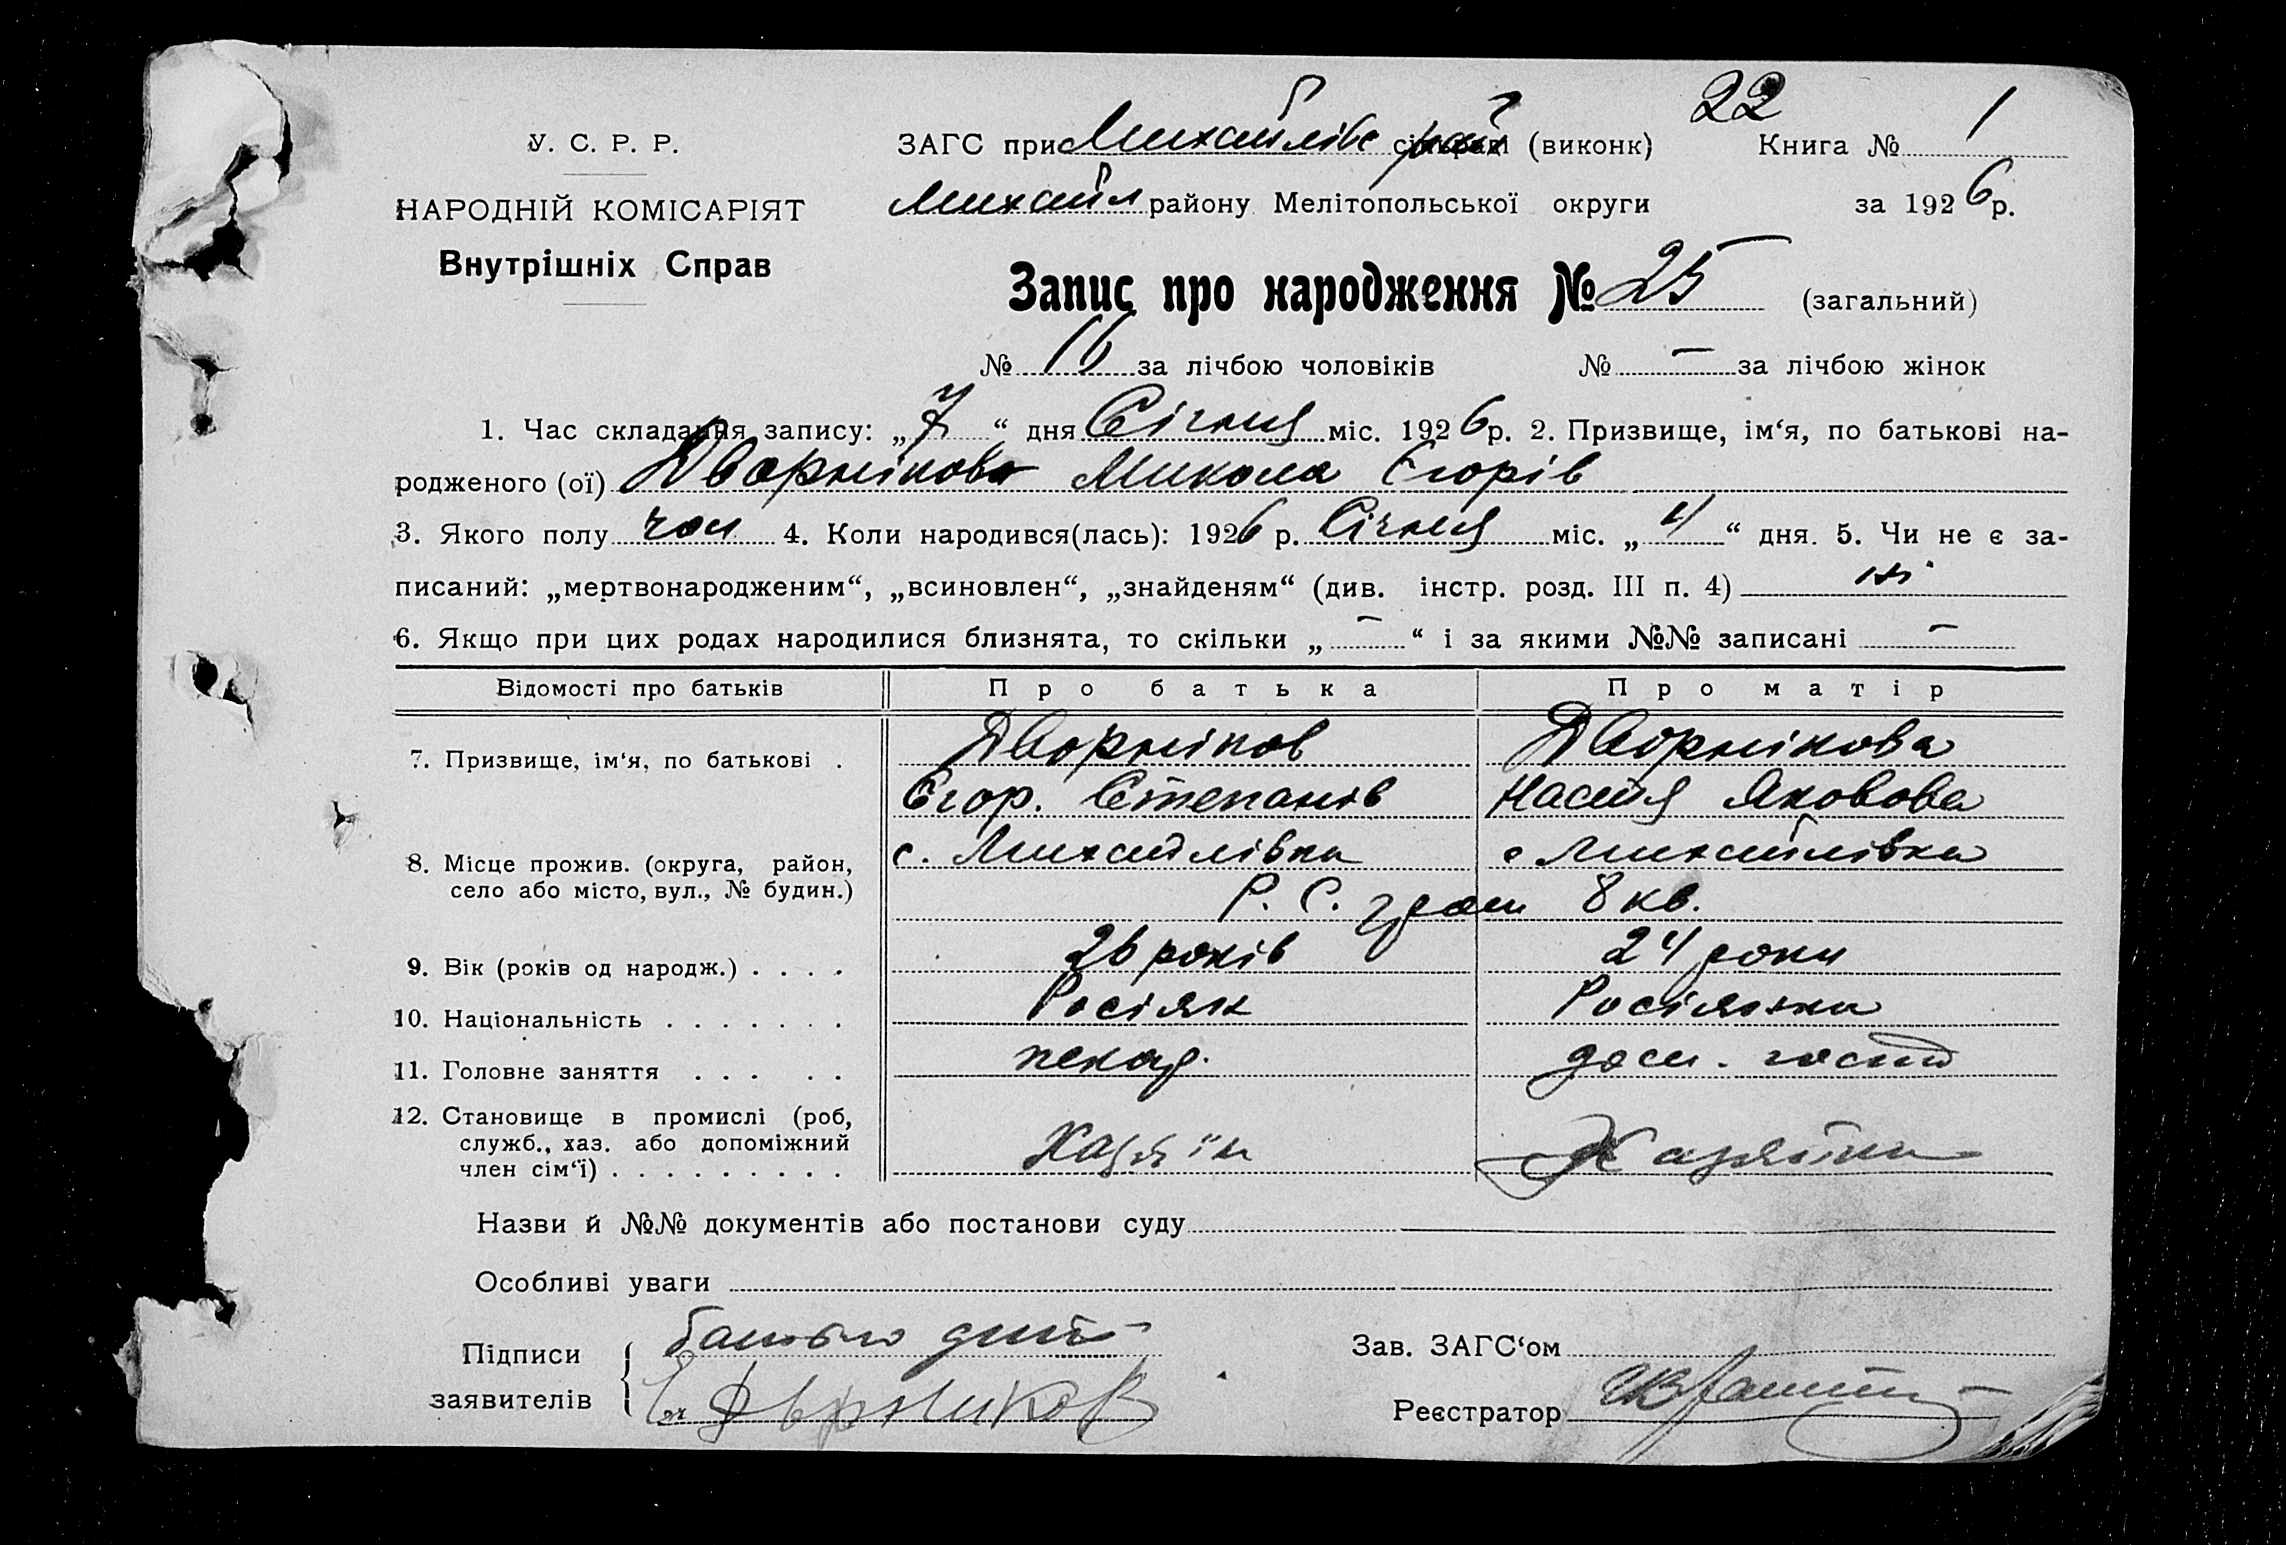 22
У. С. Р. Р.
ЗАГС при Михайлівс сільраді рай (виконк) Книга № 1
НАРОДНІЙ КОМІСАРІЯТ
Михайл району Мелітопольської округи за 1926 р.
Внутрішніх Справ
Запис про народження № 25 (загальний)
№ 16 за лічбою чоловіків № — за лічбою жінок
1. Час складання запису: „7“ дня Січня міс. 1926 р. 2. Призвище, ім‘я, по батькові на-
родженого (ої) Дворніков Микола Єгорів
3. Якого полу чол 4. Коли народився(лась): 1926 р. Січня міс. „4“ дня. 5. Чи не є за-
писаний: „мертвонародженим“, „всиновлен“, „знайденям“ (див. інстр. розд. III п. 4) ні
6. Якщо при цих родах народилися близнята, то скільки „—“ і за якими №№ записані —
Відомості про батьків Про батька Про матір
7. Призвище, ім‘я, по батькові . Дворніков Дворнікова
Єгор. Степанів Настя Яковова
8. Місце прожив. (округа, район, с. Михайлівка с Михайлівка
село або місто, вул., № будин.) Р. С. гром 8 кв.
9. Вік (років од народж.) . . . . 26 років 24 роки
10. Національність . . . . . . . Росіяк Росіянка
11. Головне заняття . . . . . пекар. дом. госпо
12. Становище в промислі (роб,
служб., хаз. або допоміжний
член сім‘ї) . . . . . . . . . Хазяїн Хазяїна
Назви й №№ документів або постанови суду
Особливі уваги
Підписи батько дит Зав. ЗАГС‘ом
заявителів Дворников Реєстратор